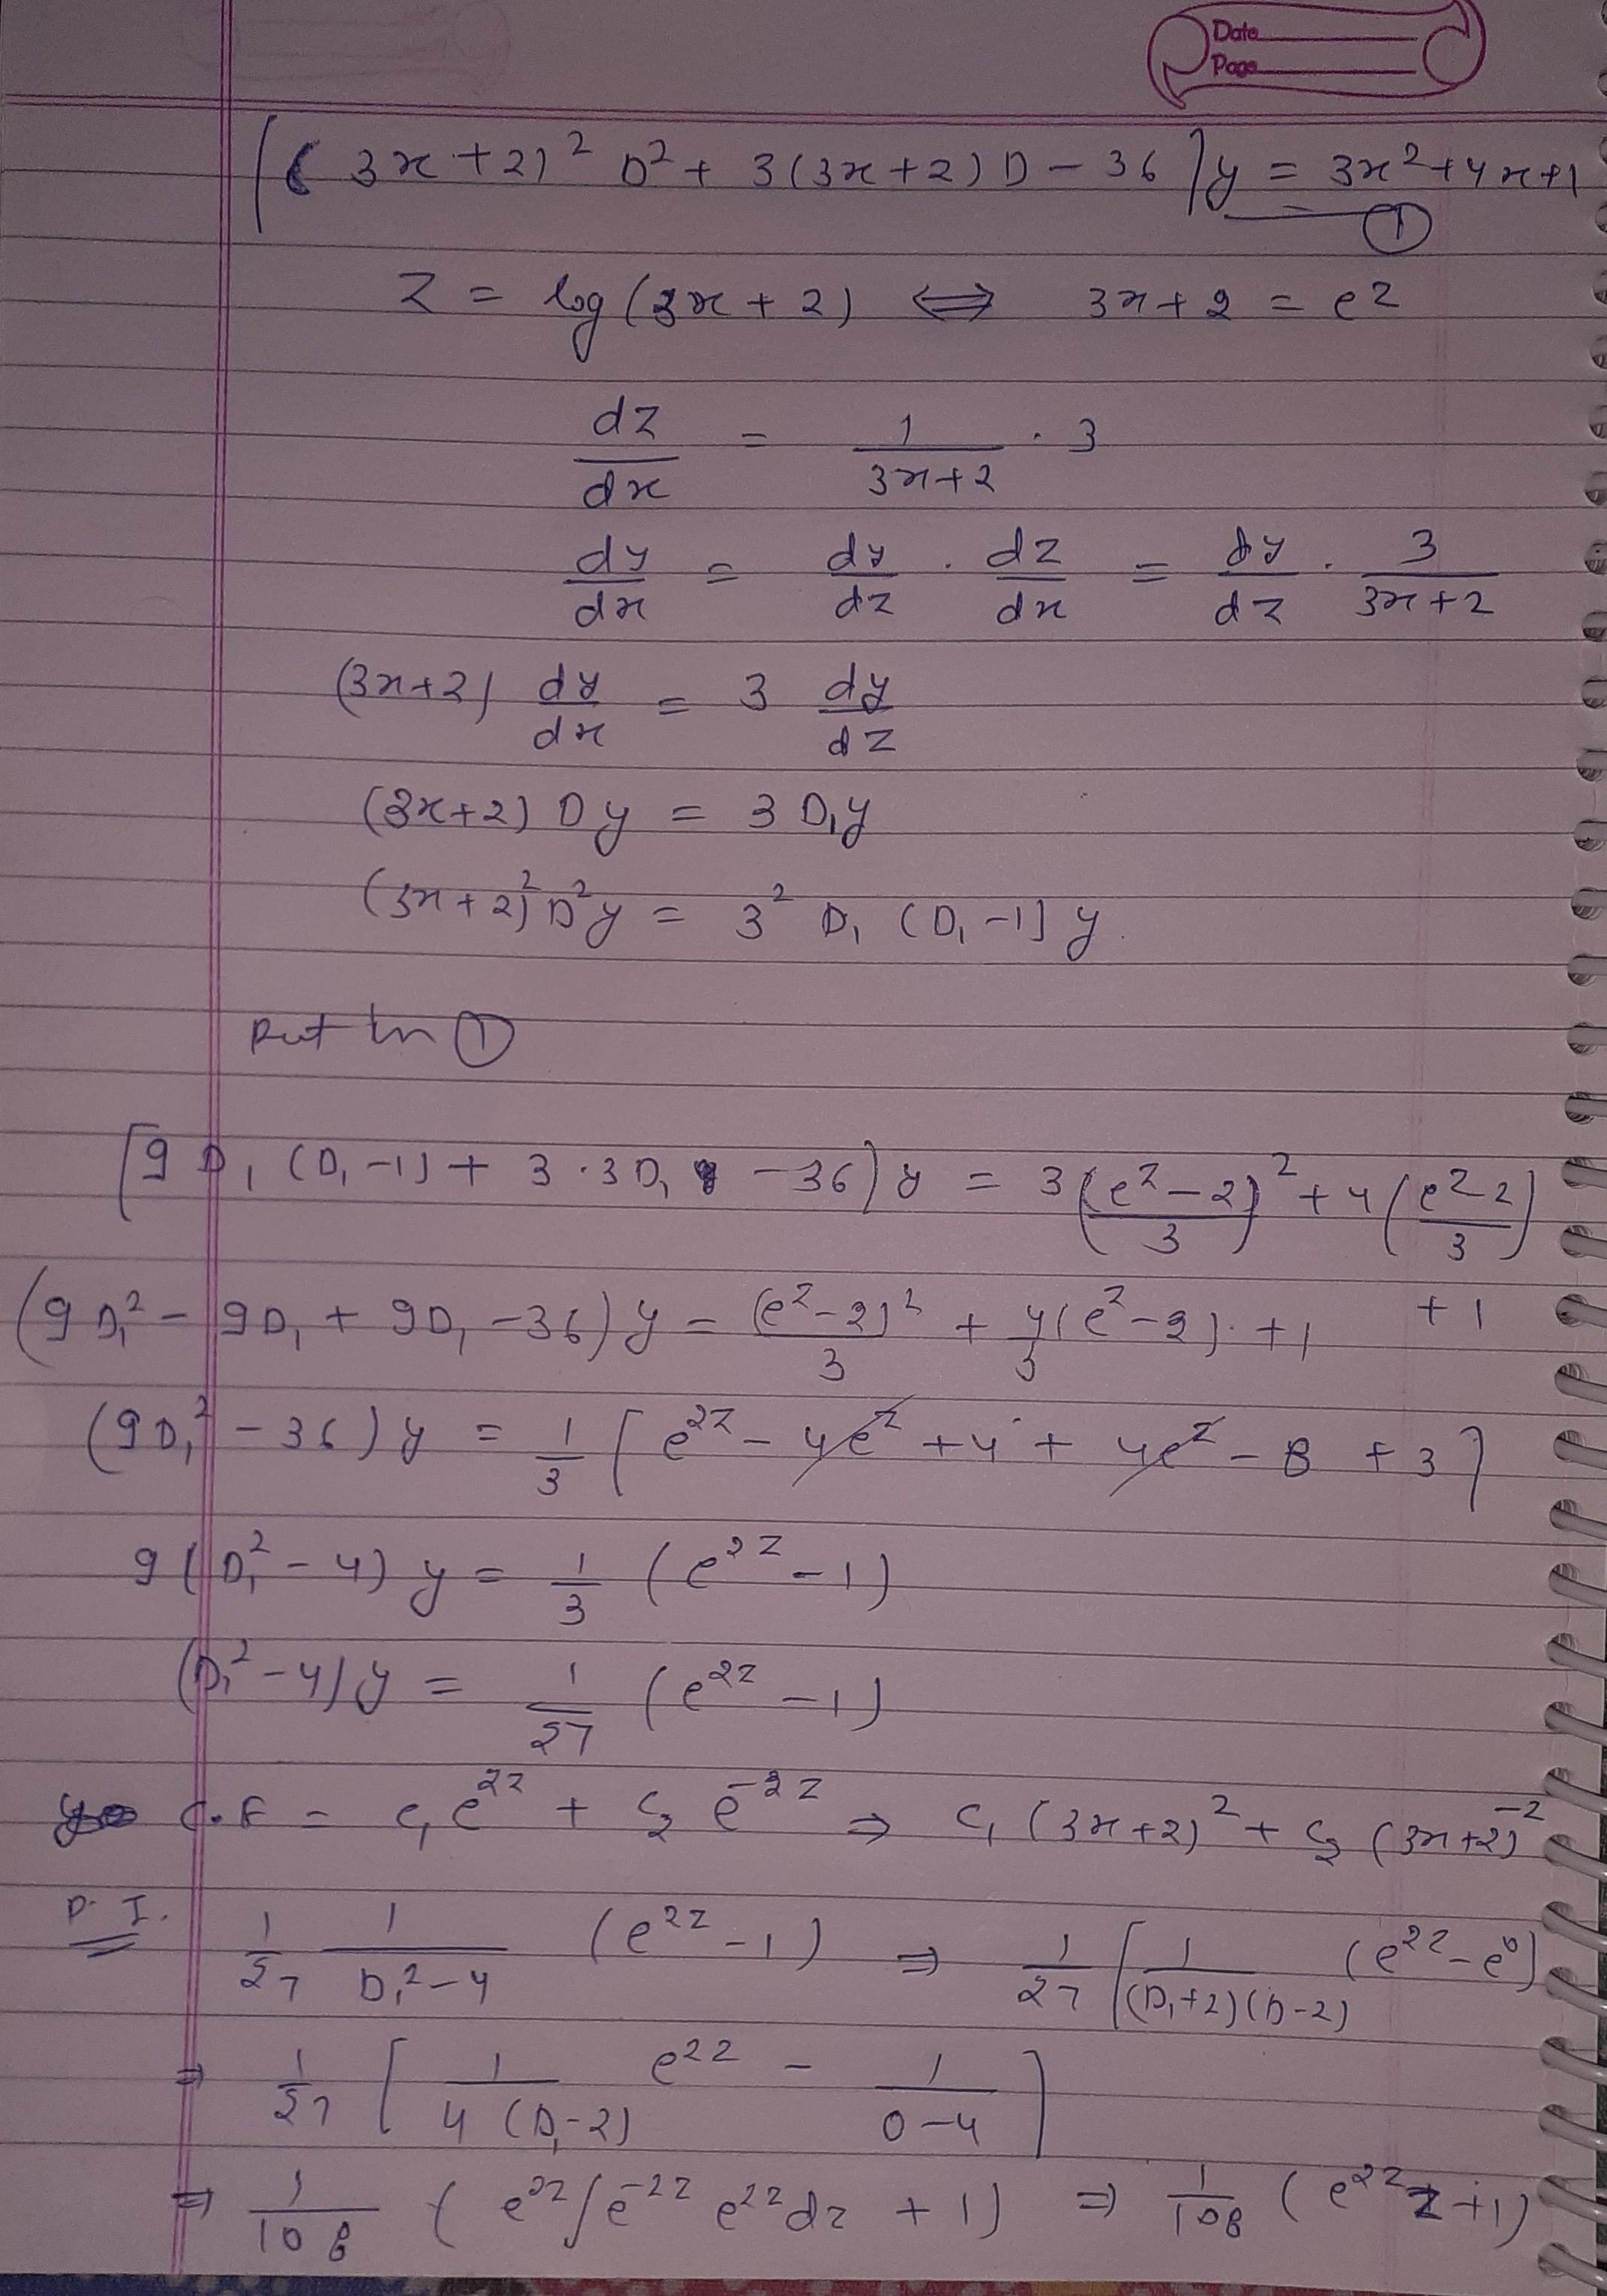 Date
Page
[(3x+2)² D² + 3(3x+2)D - 36]y = 3x²+4x+1
①
z = log(3x+2) ⟺ 3x+2 = e^z
dz/dx = 1/(3x+2) · 3
dy/dx = dy/dz · dz/dx = dy/dz · 3/(3x+2)
(3x+2) dy/dx = 3 dy/dz
(3x+2) Dy = 3 D₁y
(3x+2)² D²y = 3² D₁ (D₁-1) y
Put in ①
[9 D₁ (D₁-1) + 3·3D₁ - 36] y = 3((e^z-2)/3)² + 4((e^z-2)/3)
+ 1
(9D₁² - 9D₁ + 9D₁ - 36) y = (e^z-2)²/3 + 4/3 (e^z-2) · + 1
(9D₁² - 36) y = 1/3 [e^2z - 4e^z + 4 + 4e^z - 8 + 3]
9(D₁² - 4) y = 1/3 (e^2z - 1)
(D₁² - 4) y = 1/27 (e^2z - 1)
C.F = c₁ e^2z + c₂ e^-2z ⇒ c₁ (3x+2)² + c₂ (3x+2)^-2
P.I. 1/27 1/(D₁²-4) (e^2z - 1) ⇒ 1/27 [1/((D₁+2)(D-2)) (e^2z - e^0)]
⇒ 1/27 [1/(4(D₁-2)) e^2z - 1/(0-4)]
⇒ 1/108 (e^2z ∫e^-2z e^2z dz + 1) ⇒ 1/108 (e^2z z + 1)